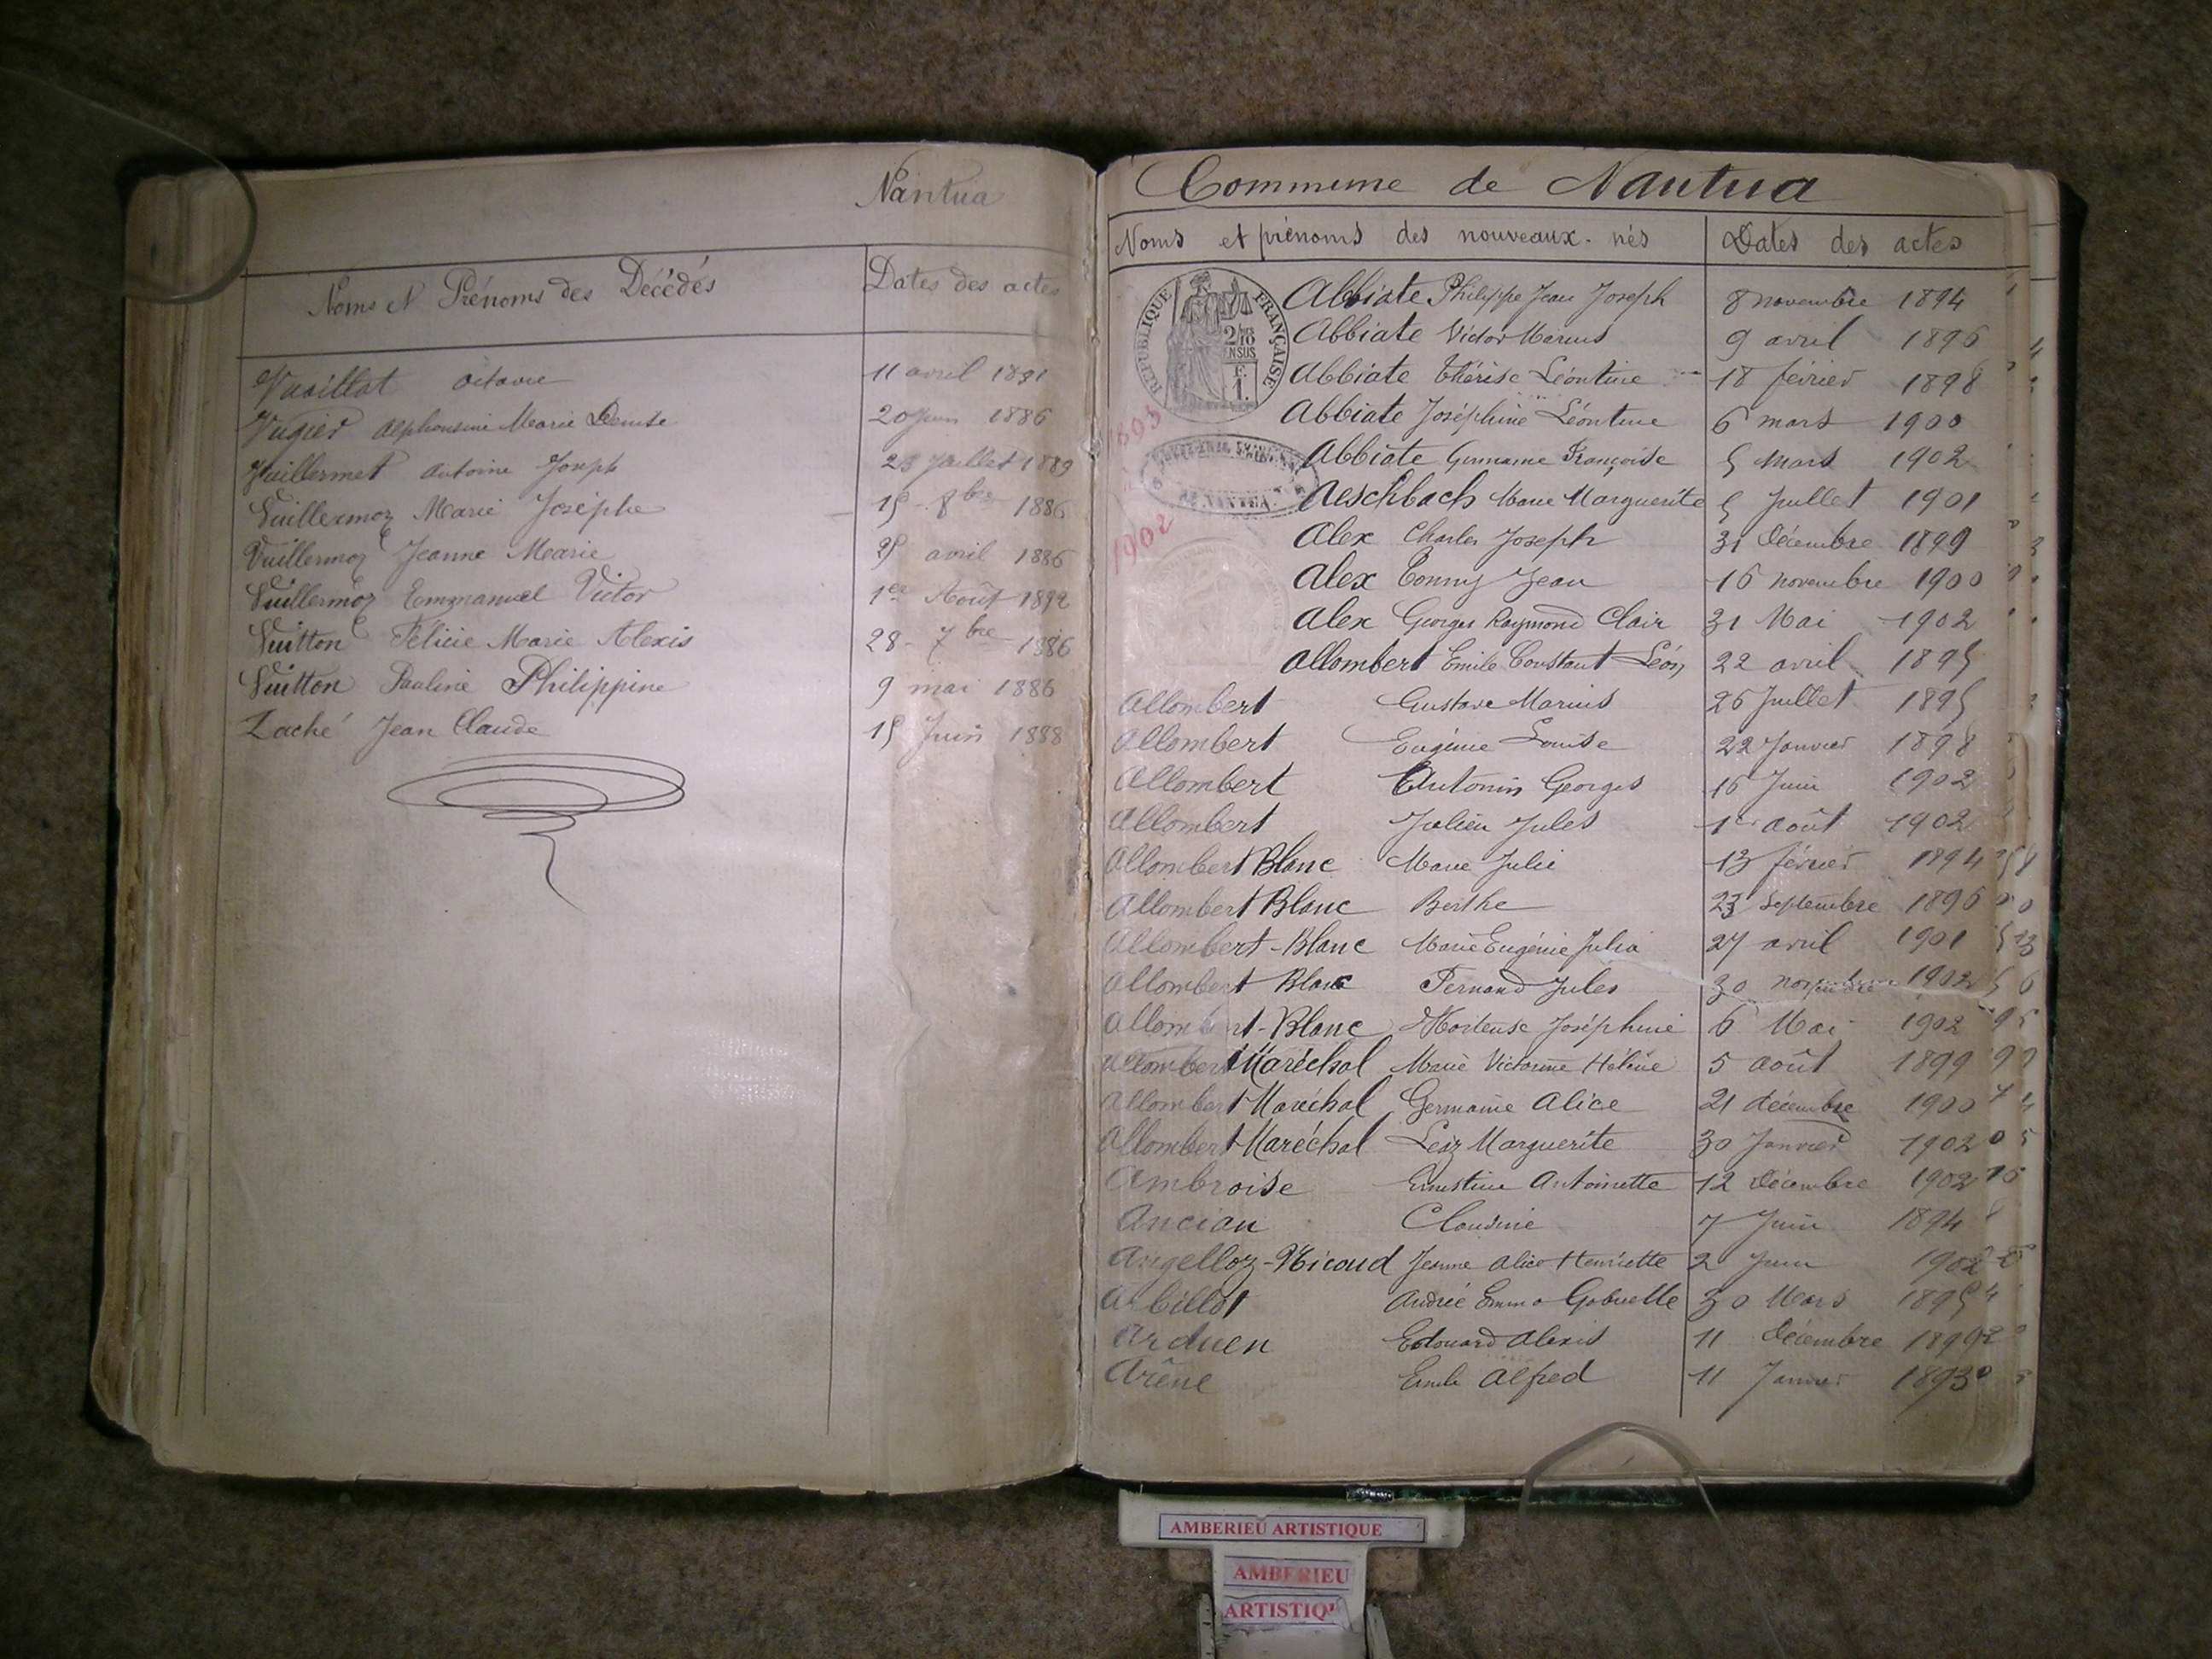 Nantua
Noms et Prénoms des Décédés
Dates des actes
Vuaillat Octavie 11 avril 1891
Vugier Alphonsine Marie Denise 20 Juin 1886
Vuillermet Antoine Joseph 23 Juillet 1889
Vuillermoz Marie Josèphe 15 8bre 1886
Vuillermoz Jeanne Marie 25 avril 1886
Vuillermoz Emmanuel Victor 1er Août 1892
Vuitton Félicie Marie Alexis 28 - 7bre 1886
Vuitton Pauline Philippine 9 mai 1886
Zaché Jean Claude 15 Juin 1888
Commune de Nantua
Noms et prénoms des nouveaux-nés
Dates des actes
RÉPUBLIQUE FRANÇAISE
2/10 EN SUS
F. 1.
1893
1902
Abbiate Philippe Jean Joseph 8 novembre 1894
Abbiate Victor Marius 9 avril 1896
Abbiate Thérèse Léontine 18 février 1898
Abbiate Joséphine Léontine 6 mars 1900
Abbiate Germaine Françoise 5 Mars 1902
Aeschbach Marie Marguerite 5 Juillet 1901
Alex Charles Joseph 31 Décembre 1899
Alex Tonny Jean 16 novembre 1900
Alex Georges Raymond Clair 31 Mai 1902
Allombert Emile Constant Léon 22 avril 1895
Allombert Gustave Marius 26 Juillet 1895
Allombert Eugénie Louise 22 Janvier 1898
Allombert Antonin Georges 16 Juin 1902
Allombert Julien Jules 1er août 1902
Allombert Blanc Marie Julie 13 février 1894
Allombert Blanc Berthe 23 Septembre 1896
Allombert-Blanc Marie Eugénie Julia 27 avril 1901
Allombert Blanc Fernand Jules 30 novembre 1902
Allombert-Blanc Hortense Joséphine 6 Mai 1902
Allombert Maréchal Marie Victorine Hélène 5 août 1899
Allombert Maréchal Germaine Alice 21 décembre 1900
Allombert Maréchal Marguerite 30 Janvier 1902
Ambroise Ernestine Antoinette 12 Décembre 1902
Ancian Claudine 7 Juin 1894
Angelloz-Nicoud Jeanne Alice Henriette 2 Juin 1902
Arbillot Andrée Emma Gabrielle 30 Mars 1895
Arduen Edouard Alexis 11 Décembre 1899
Arène Emile Alfred 11 Janvier 1893
AMBERIEU ARTISTIQUE
AMBERIEU
ARTISTIQU